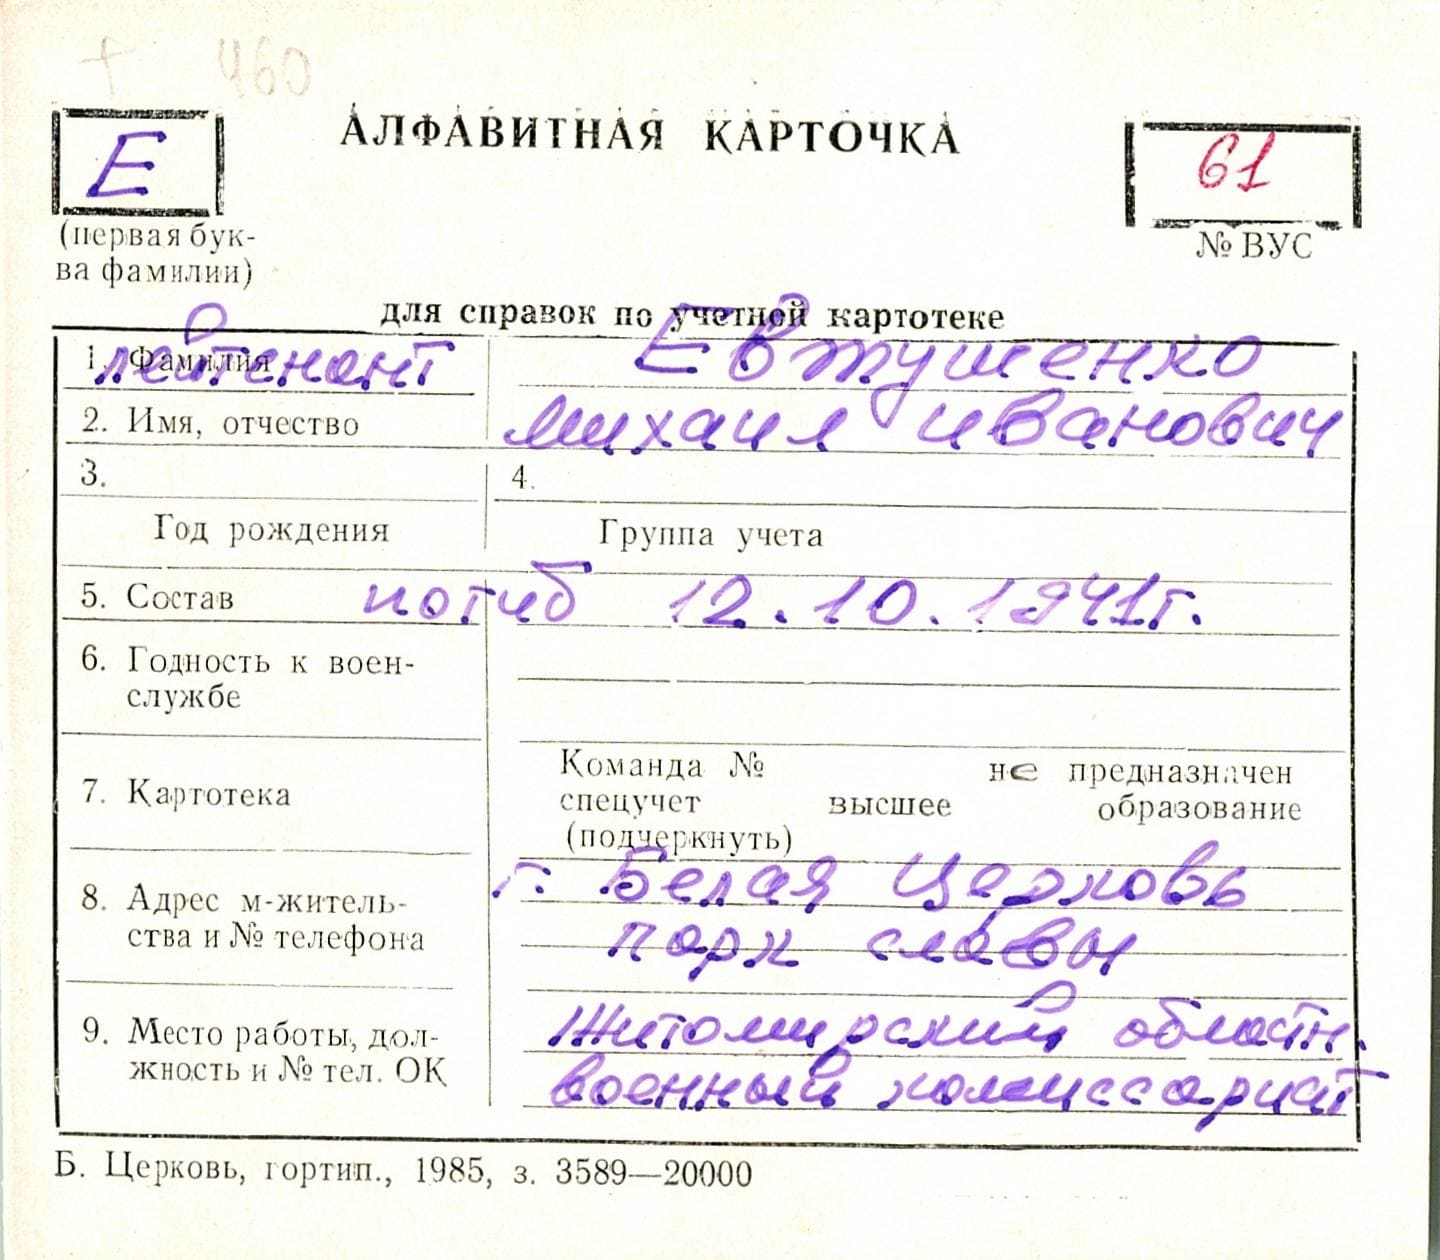 † 460
Е
АЛФАВИТНАЯ КАРТОЧКА
61
(первая бук-
ва фамилии)
№ ВУС
для справок по учетной картотеке
1. Фамилия лейтенант Евтушенко
2. Имя, отчество Михаил Иванович
3. 4.
Год рождения Группа учета
5. Состав погиб 12.10.1941г.
6. Годность к воен-
службе
7. Картотека
Команда № не предназначен
спецучет высшее образование
(подчеркнуть)
8. Адрес м-житель-
ства и № телефона
г. Белая Церковь
парк славы
9. Место работы, дол-
жность и № тел. ОК
Житомирский областн.
военный комиссариат
Б. Церковь, гортип., 1985, з. 3589—20000